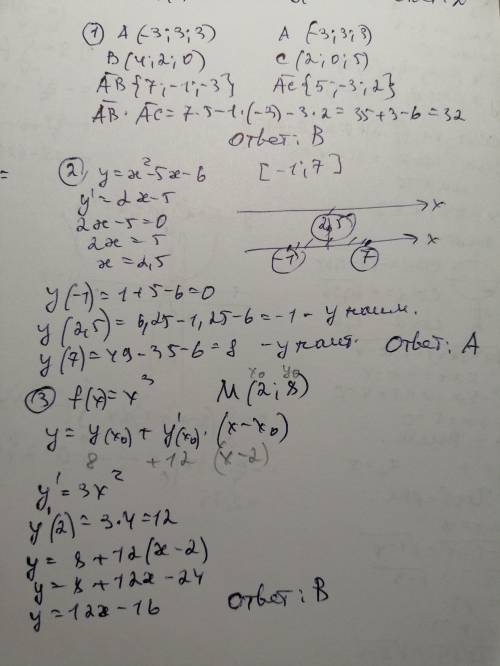 ① A (-3; 3; 3)    A (-3; 3; 3)
B (4; 2; 0)    C (2; 0; 5)
AB {7; -1; -3}    AC {5; -3; 2}
AB · AC = 7·5-1·(-3)-3·2 = 35+3-6 = 32
Ответ: В
② y = x²-5x-6    [-1; 7]
y' = 2x-5
2x-5=0    x
2x = 5    2,5    x
x = 2,5    -1    7
y(-1) = 1+5-6=0
y(2,5) = 6,25-1,25-6=-1 - y наим.
y(7) = 49-35-6=8 - y наиб.    Ответ: А
③ f(x) = x³    M (2; 8)    x₀    y₀
y = y(x₀) + y'(x₀)·(x-x₀)
8    +12    (x-2)
y' = 3x²
y'(2) = 3·4=12
y = 8+12(x-2)
y = 8+12x-24
y = 12x-16    Ответ: В